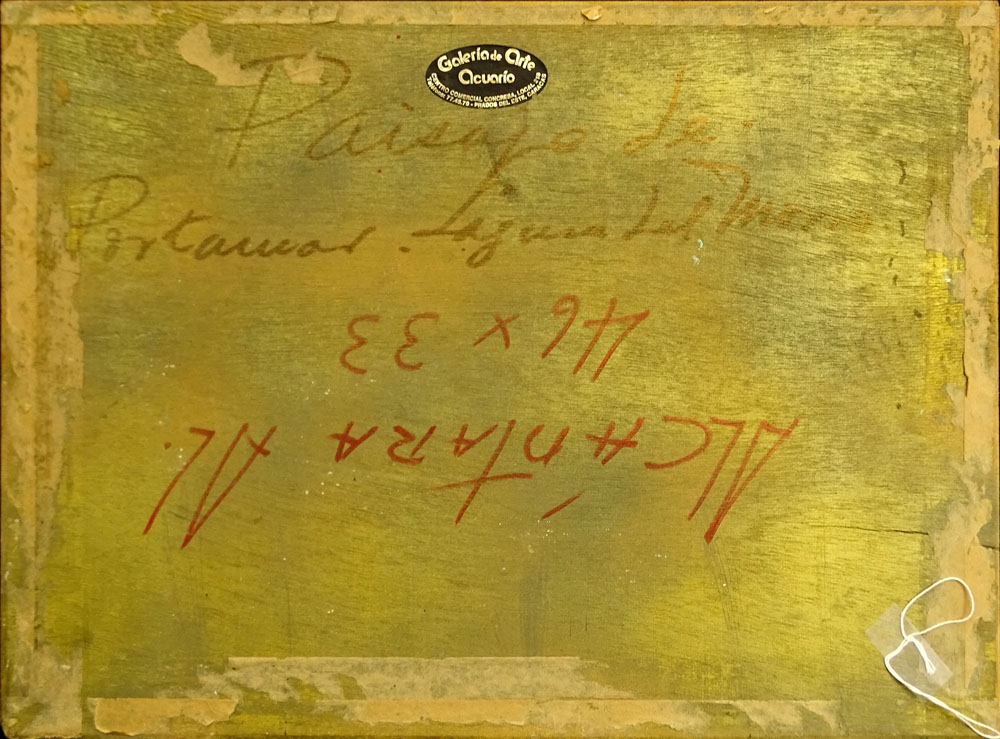 Galería de Arte
Acuario
CENTRO COMERCIAL CONCRESA, LOCAL 218
Teléfono: 77.45.79 - PRADOS DEL ESTE, CARACAS
Paisaje de
Porlamar. Laguna del Morro.
46 x 33
ALCÁNTARA AL.